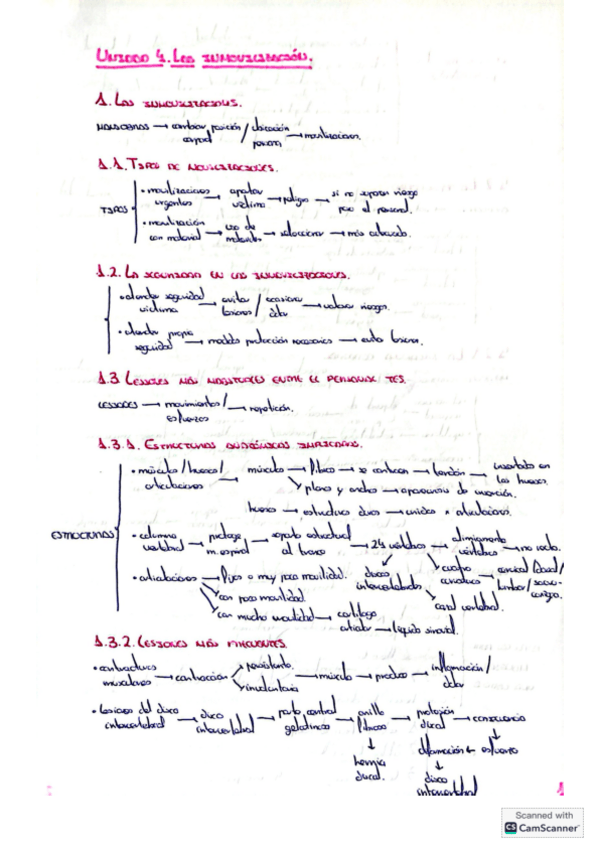 Unidad 4. Las inmovilización.
1. Las inmovilizaciones.
→ cambiar posición / ubicación → movilizaciones.
corporal persona
1.1. Tipos de movilizaciones.
TIPOS
• movilizaciones → apartar → peligro → si no suponen riesgo
urgentes víctima para el personal.
• movilización → uso de → seleccionar → más adecuado.
con material material
1.2. La seguridad en las inmovilizaciones.
seguridad → evitar / ocasionar → valorar riesgos.
víctima lesiones dolor
propia → medidas protección necesarias → evita lesiones.
seguridad
1.3 Lesiones más habituales entre el personal TES.
LESIONES → movimientos / → repetición.
esfuerzos
1.3.1. Estructuras anatómicas implicadas.
• músculos / huesos / → músculo → fibras → se contraen → tendón → insertado en
articulaciones los huesos.
planos y anchos → aponeurosis de inserción.
huesos → estructuras duras → unidas x articulaciones.
• columna → protege → soporte estructural → 24 vértebras → alineamiento → no recto.
vertebral m. espinal al tronco vértebras
discos intervertebrales
cuatro curvaturas → cervical / dorsal /
lumbar / sacro-
coxígea.
canal vertebral.
• articulaciones → fijas o muy poca movilidad.
con poca movilidad.
con mucha movilidad → cartílago → líquido sinovial.
articular
1.3.2. Lesiones más frecuentes.
• contracturas → contracción → persistente → músculo → produce → inflamación /
musculares involuntaria dolor
• lesiones del disco → disco → parte central → anillo → protusión → consecuencia
intervertebral intervertebral gelatinosa fibroso discal
hernia
discal.
deformación ← esfuerzo
disco
intervertebral
1
Scanned with
CS CamScanner